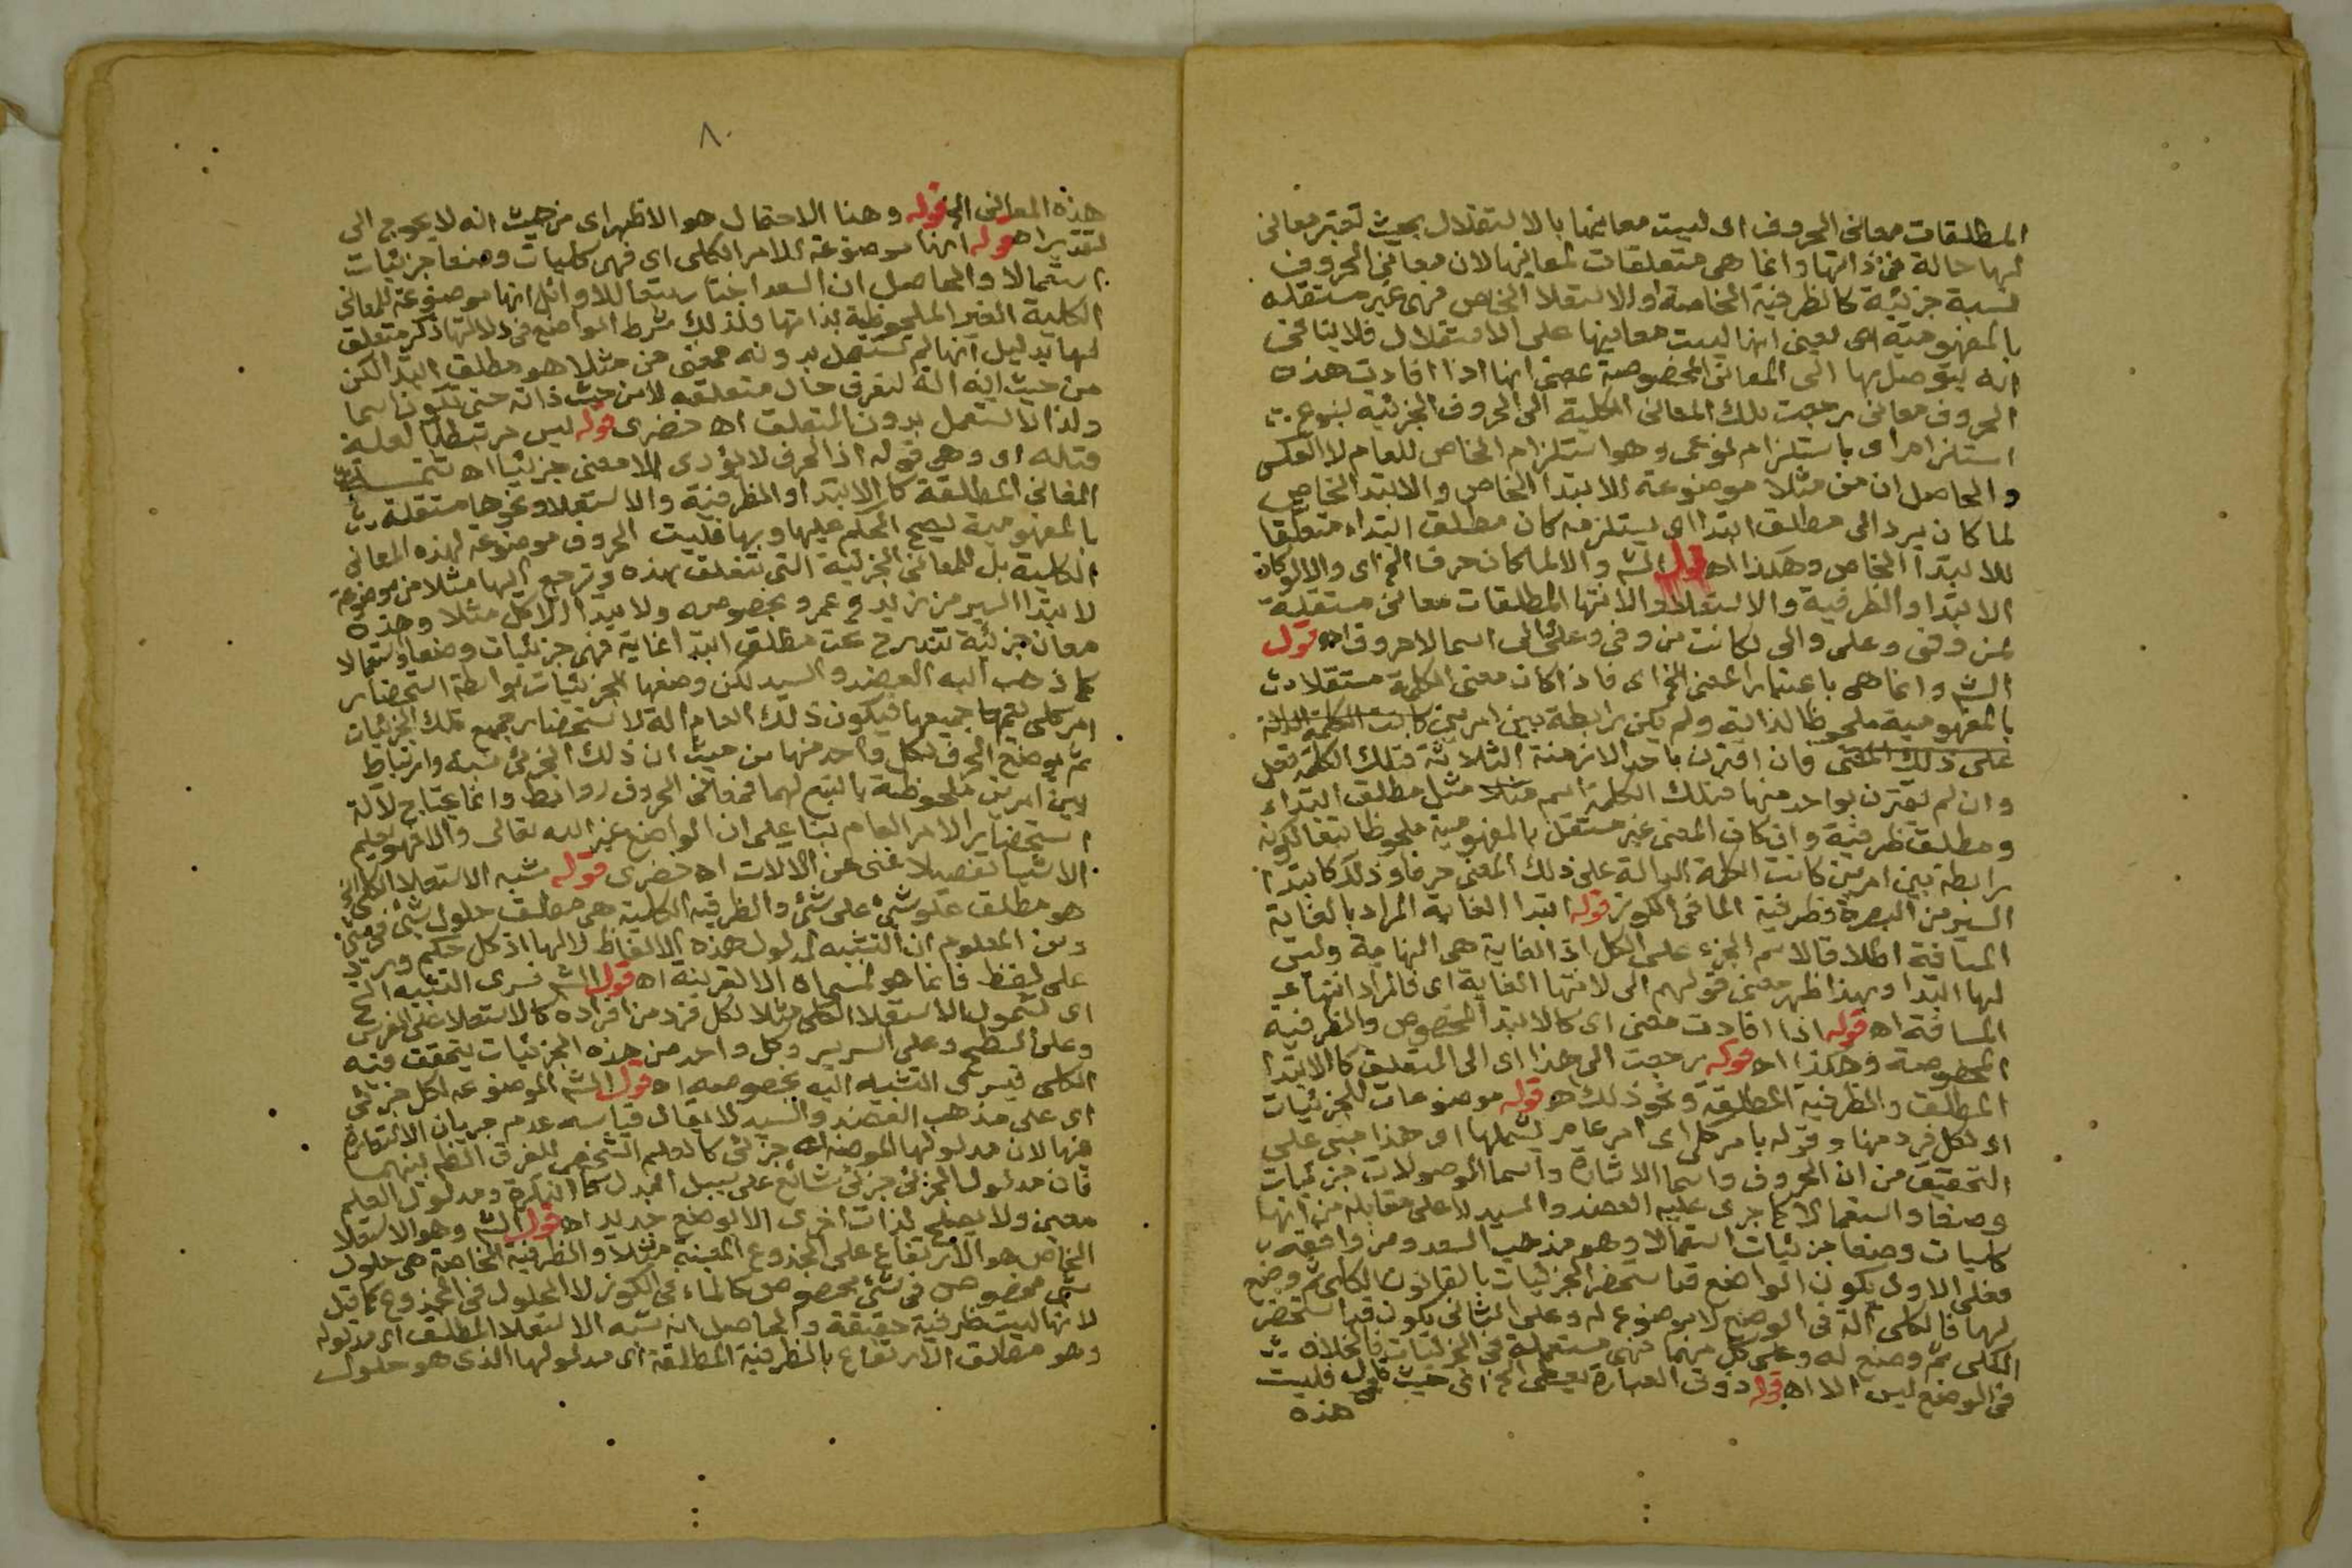 المطلقات معانى الحروف اى ليست معانيها بالاستقلال بحيث تعتبر معانى
لها حالة فى ذاتها وانما هى متعلقات لمعانيها لان معانى الحروف
نسبة جزئية كالظرفية الخاصة او الاستعلا الخاص فهى غير مستقله
بالمفهومية اى يعنى انها ليست معانيها على الاستقلال فلا ينافى
انه يتوصل بها الى المعانى المخصوصة بمعنى انها اذا افادت هذه
الحروف معانى رجعت تلك المعانى الكلية الى الحروف الجزئية بنوع
استلزام اى باستلزام نوعى وهو استلزام الخاص للعام لا العكس
والحاصل ان من مثلا موضوعة للابتدا الخاص والابتدا الخاص
لما كان يرد الى مطلق ابتدا اى يستلزمه كان مطلق ابتداء متعلقا
للابتدا الخاص وهكذا اه قول الش والا لما كانت حرفا الخ اى والا لو كان
الابتدا والظرفية والاستعلا والانتها المطلقات معانى مستقلة
لمن وفى وعلى والى لكانت من وفى وعلى والى اسما لا حروف اه قول
الش وانما هى باعتبار المعنى الخ اى فاذا كان معنى الكلمة مستقلا
بالمفهومية ملحوظا لذاته ولم يكن رابطة بين امرين كانت الكلمة الدالة
على ذلك المعنى فان اقترن باحد الازمنة الثلاثة فتلك الكلمة فعل
وان لم يقترن بواحد منها فتلك الكلمة اسم مثلا مثل مطلق ابتداء
ومطلق ظرفية وان كان المعنى غير مستقل بالمفهومية ملحوظا تبعا لكونه
رابطة بين امرين كانت الكلمة الدالة على ذلك المعنى حرفا وذلك كابتدا
السير من البصرة وظرفية الما فى الكوز قوله ابتدا الغاية المراد بالغاية
المسافة اطلاقا لاسم الجزء على الكل اذ الغاية هى النهاية وليس
لها ابتدا وبهذا ظهر معنى قولهم الى لانتها الغاية اى فالمراد انتهاء
المسافة اه قوله اذا افادت معنى اى كالابتدا المخصوص والظرفية
المخصوصة وهكذا اه قوله رجعت الى هذا اى الى المتعلق كالابتدا
المطلق والظرفية المطلقة ونحو ذلك اه قوله موضوعات للجزئيات
اى لكل فرد منها وقوله بامر كلى اى امر عام يشملها اى هذا مبنى على
التحقيق من ان الحروف واسما الاشارة واسما الموصولات جزئيات
وضعا واستعمالا كما جرى عليه العضد والسيد لا على مقابله من انها
كليات وضعا جزئيات استعمالا وهو مذهب السعد ومن وافقه
فعلى الاول يكون الواضع قد استحضر الجزئيات بالقانون الكلى ثم وضع
لها فالكلى آلة فى الوضع لا موضوع له وعلى الثانى يكون قد استحضر
الكلى ثم وضع له وعلى كل منهما فهى مستعملة فى الجزئيات فالخلاف
فى الوضع ليس الا اه قوله دوت العبارة يعطى الخ اى حيث قال فليست
هذه
٨
هذه المعانى الخ قوله وهنا الاحتمال هو الاظهر اى من حيث انه لا يحوج الى
تقدير اه قوله انها موضوعة للامر الكلى اى فهى كليات وضعا جزئيات
استعمالا والحاصل ان السعد اختار تبعا للاوائل انها موضوعة للمعانى
الكلية الغير الملحوظة بذاتها فلذلك شرط الواضع فى دلالتها ذكر متعلق
لها بدليل انها لم تستعمل بدونه فمعنى من مثلا هو مطلق ابتدا لكن
من حيث انه الة لتعرف حال متعلقه لا من حيث ذاته حتى تكون اسما
ولذا لا تستعمل بدون المتعلق اه خضرى قوله ليس مرتبطا لعلية
قبله اى وهى قوله اذ الحرف لا يؤدى الا معنى جزئيا اه
المعانى المطلقة كالابتدا والظرفية والاستعلا ونحوها مستقلة
بالمفهومية يصح الحكم عليها وبها فليست الحروف موضوعة لهذه المعانى
الكلية بل للمعانى الجزئية التى تتعلق بهذه وترجع اليها مثلا من موضوعة
لابتدا السير من زيد وعمرو بخصوصه ولابتدا الاكل مثلا وهذه
معان جزئية تندرج تحت مطلق ابتدا غاية فهى جزئيات وضعا واستعمالا
كما ذهب اليه العضد والسيد لكن وضعها للجزئيات بواسطة استحضار
امر كلى يعمها جميعها فيكون ذلك العام الة لاستحضار جميع تلك الجزئيات
ثم يوضع الحرف لكل واحد منها من حيث ان ذلك الجزئى نسبة وارتباط
بين امرين ملحوظة بالتبع لهما فمعانى الحروف روابط وانما يحتاج لآلة
استحضار الامر العام بنا على ان الواضع غير الله تعالى والا فهو يعلم
الاشيا تفصيلا غنى عن الالات اه خضرى قوله شبه الاستعلا الكلى
هو مطلق علو شئ على شئ والظرفية الكلية هى مطلق حلول شئ فى شئ
ومن المعلوم ان التشبيه لمدلول هذه الالفاظ لا لها اذ كل حكم ورد
على لفظ فانما هو لمسماه الا لقرينة اه قول الش فسرى التشبيه الخ
اى لشمول الاستعلا الكلى مثلا لكل فرد من افراده كالاستعلا على الفرس
وعلى السطح وعلى السرير وكل واحد من هذه الجزئيات يتحقق فيه
الكلى فيسرى التشبيه اليه بخصوصه اه قول الش الموضوعه لكل جزئى
اى على مذهب العضد والسيد لا يقال قياسه عدم جريان الاستعارة
فيها لان مدلولها الموضوع له جزئى كالعلم الشخصى للفرق الظ بينهما
فان مدلول الجزئى جزئى شائع على سبيل البدل كالنكرة ومدلول العلم
معين ولا يصلح لذات اخرى الا بوضع جديد اه قول الش وهو الاستعلا
الخاص هو الارتفاع على الجذوع المعينة مثلا والظرفية الخاصة هى حلول
شئ مخصوص فى شئ مخصوص كالماء فى الكوز لا الحلول فى الجذوع كما قيل
لانها ليست ظرفية حقيقة والحاصل انه شبه الاستعلا المطلق اى مدلوله
وهو مطلق الارتفاع بالظرفية المطلقة اى مدلولها الذى هو حلول